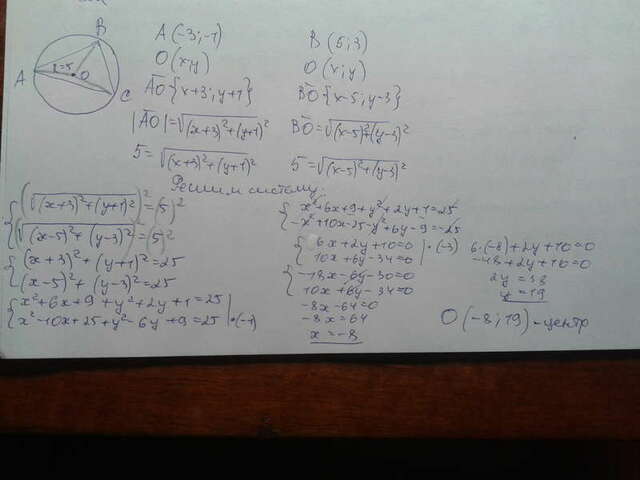 B
A
r=5
O
C
A (-3;-1)
O(x;y)
AO {x+3; y+1}
|AO| = √(x+3)²+(y+1)²
5 = √(x+3)²+(y+1)²
B (5;3)
O(x;y)
BO {x-5; y-3}
BO = √(x-5)²+(y-3)²
5 = √(x-5)²+(y-3)²
Решим систему:
{ (√(x+3)²+(y+1)²)² = (5)²
(√(x-5)²+(y-3)²)² = (5)²
{ (x+3)²+(y+1)²=25
(x-5)²+(y-3)²=25
{ x²+6x+9+y²+2y+1=25
x²-10x+25+y²-6y+9=25 |·(-1)
{ x²+6x+9+y²+2y+1=25
-x²+10x-25-y²+6y-9=-25
{ 6x+2y+10=0 |·(-3)
10x+6y-34=0
{ -18x-6y-30=0
10x+6y-34=0
-8x-64=0
-8x=64
x=-8
6·(-8)+2y+10=0
-48+2y+10=0
2y=38
y=19
O(-8;19)-центр